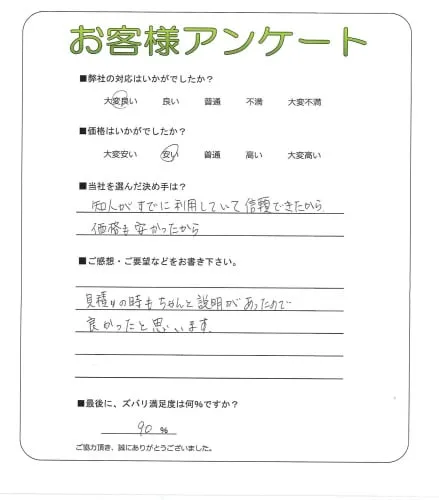 お客様アンケート
■弊社の対応はいかがでしたか?
大変良い 良い 普通 不満 大変不満
■価格はいかがでしたか?
大変安い 安い 普通 高い 大変高い
■当社を選んだ決め手は?
知人がすでに利用していて信頼できたから
価格も安かったから
■ご感想・ご要望などをお書き下さい。
見積りの時もちゃんと説明があったので
良かったと思います。
■最後に、ズバリ満足度は何%ですか?
90 %
ご協力頂き、誠にありがとうございました。